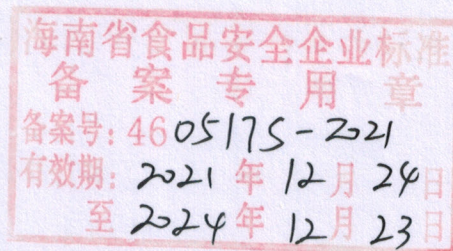 海南省食品安全企业标准
备案专用章
备案号：46 05175-2021
有效期：2021年12月24日
至2024年12月23日